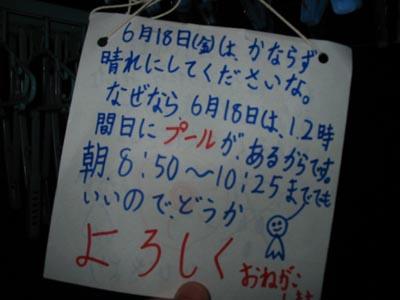 6月18日(金)は、かならず
晴れにしてくださいな。
なぜなら、6月18日は、1.2時
間目に プールが、あるからです。
朝、8:50～10:25まででも
いいので、どうか
よろしく
おねがい